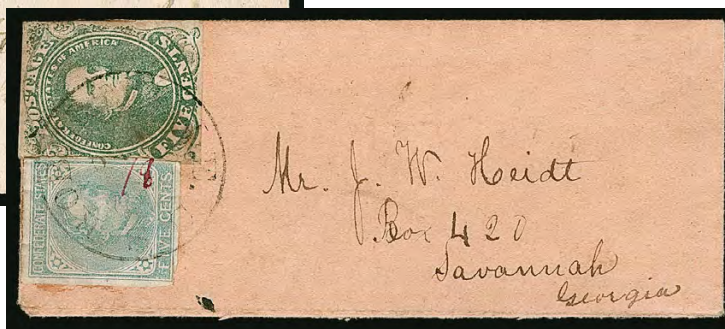 POSTAGE
CONFEDERATE STATES OF AMERICA
FIVE CENTS
18
CONFEDERATE STATES
FIVE CENTS
Mr. J. W. Heidt
Box 420
Savannah
Georgia